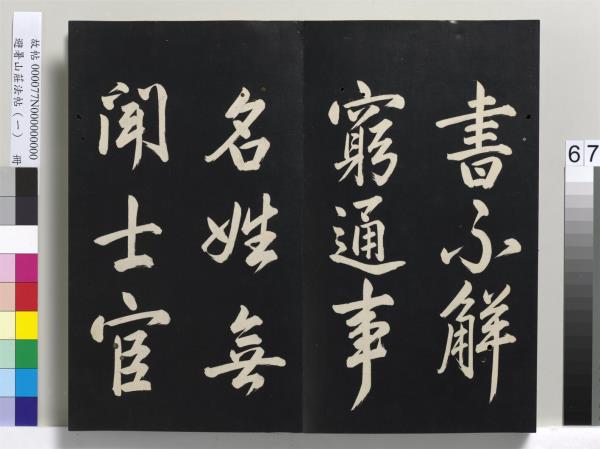 書不解
窮通事
名姓無
聞士宦
故帖 000077N000000000
避暑山莊法帖（一） 冊
6 7